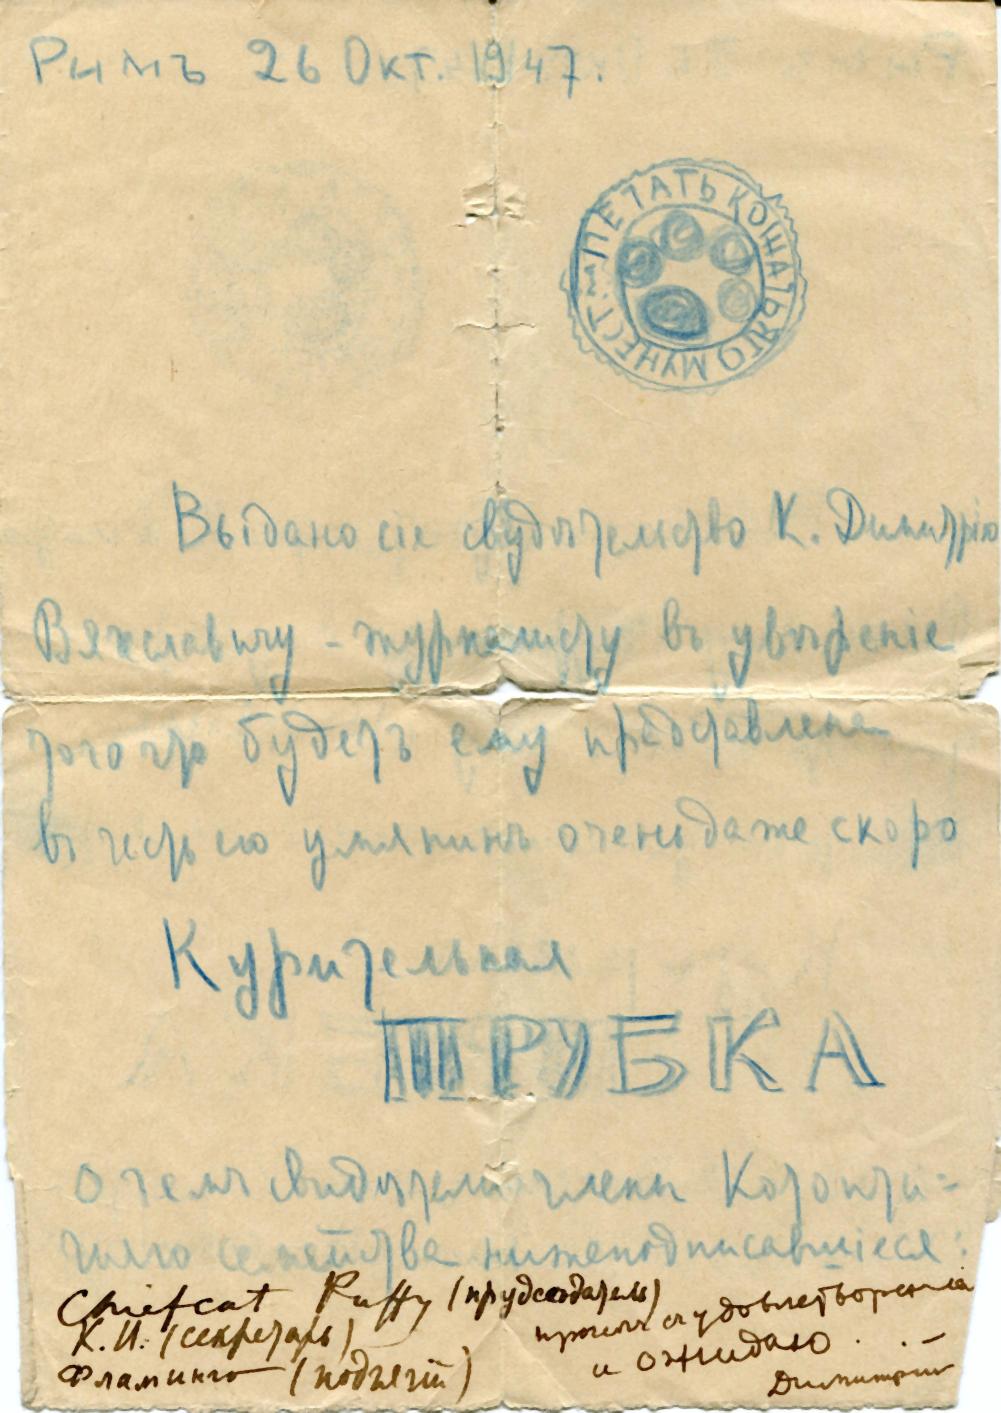 Римъ 26 Окт. 1947.
ПЕЧАТЬ КОШАТЬЯГО МУНЕСТ.
Выдано сіе свидѣтельство К. Димитрію
Вячеславичу - журналисту въ увѣреніе
того что будетъ ему предоставлена
въ честь ею умянинъ очень даже скоро
Курительная
ТРУБКА
о чемъ свидѣтели члены
семейства нижеподписавшіеся:
Chiefcat Puffy (прудседатель)
К.И. (секретарь)
Фламинго (подъячій)
прочелъ съ удовлетвореніемъ
и ожидаю.
Димитрій